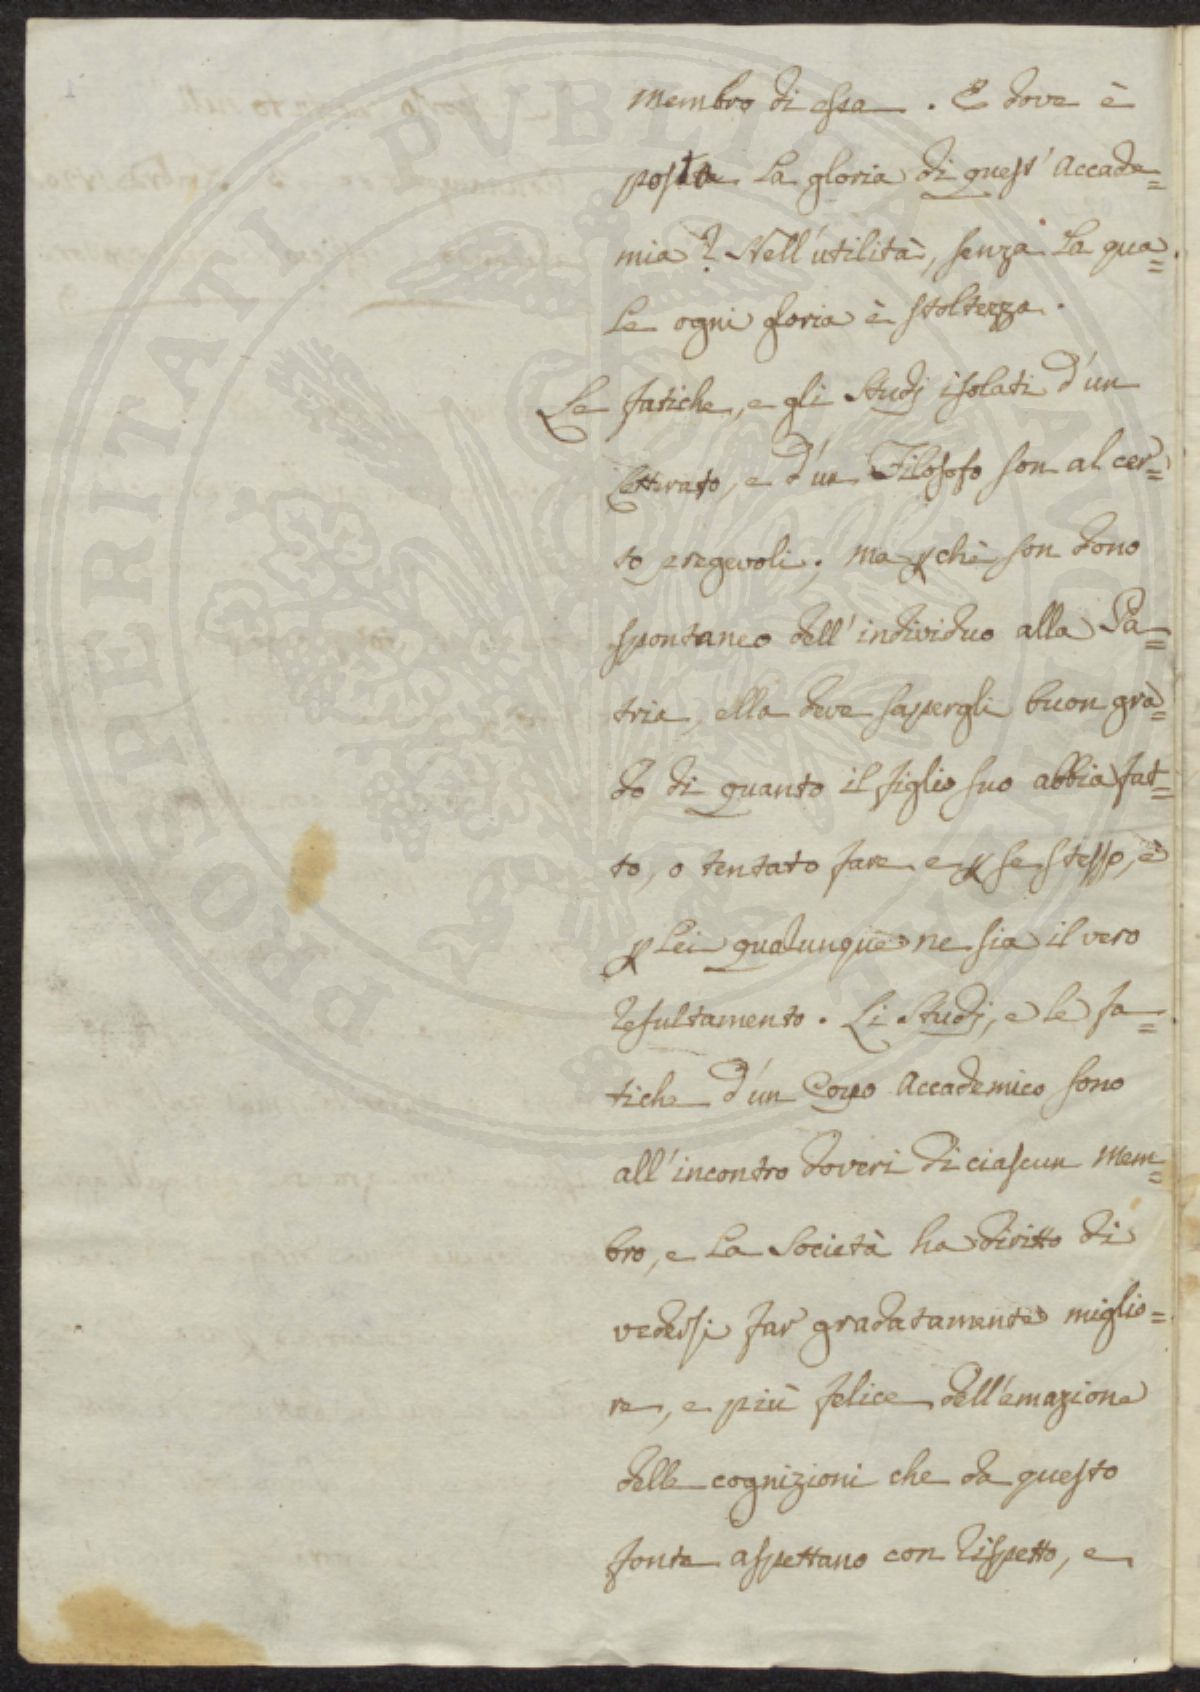 membro di essa. E dove è
posta la gloria di quest'Accade=
mia? Nell'utilità, senza la qua=
le ogni gloria è stoltezza.
Le fatiche, e gli Studj isolati d'un
Letterato, e d'un Filosofo son al cer=
to pregevoli; ma pchè son dono
spontaneo dell'individuo alla Pa=
tria, ella deve sapergli buon gra=
do di quanto il figlio suo abbia fat=
to, o tentato fare e p se stesso, e
p Lei qualunque ne sia il vero
resultamento. Li Studj, e le fa=
tiche d'un Corpo Accademico sono
all'incontro doveri di ciascun Mem=
bro, e la Società ha diritto di
vedersi far gradatamente miglio=
re, e più felice dell'emazione
delle cognizioni che da questo
fonte aspettano con rispetto, e
PROSPERITATI PVBLICAE AVGENDAE